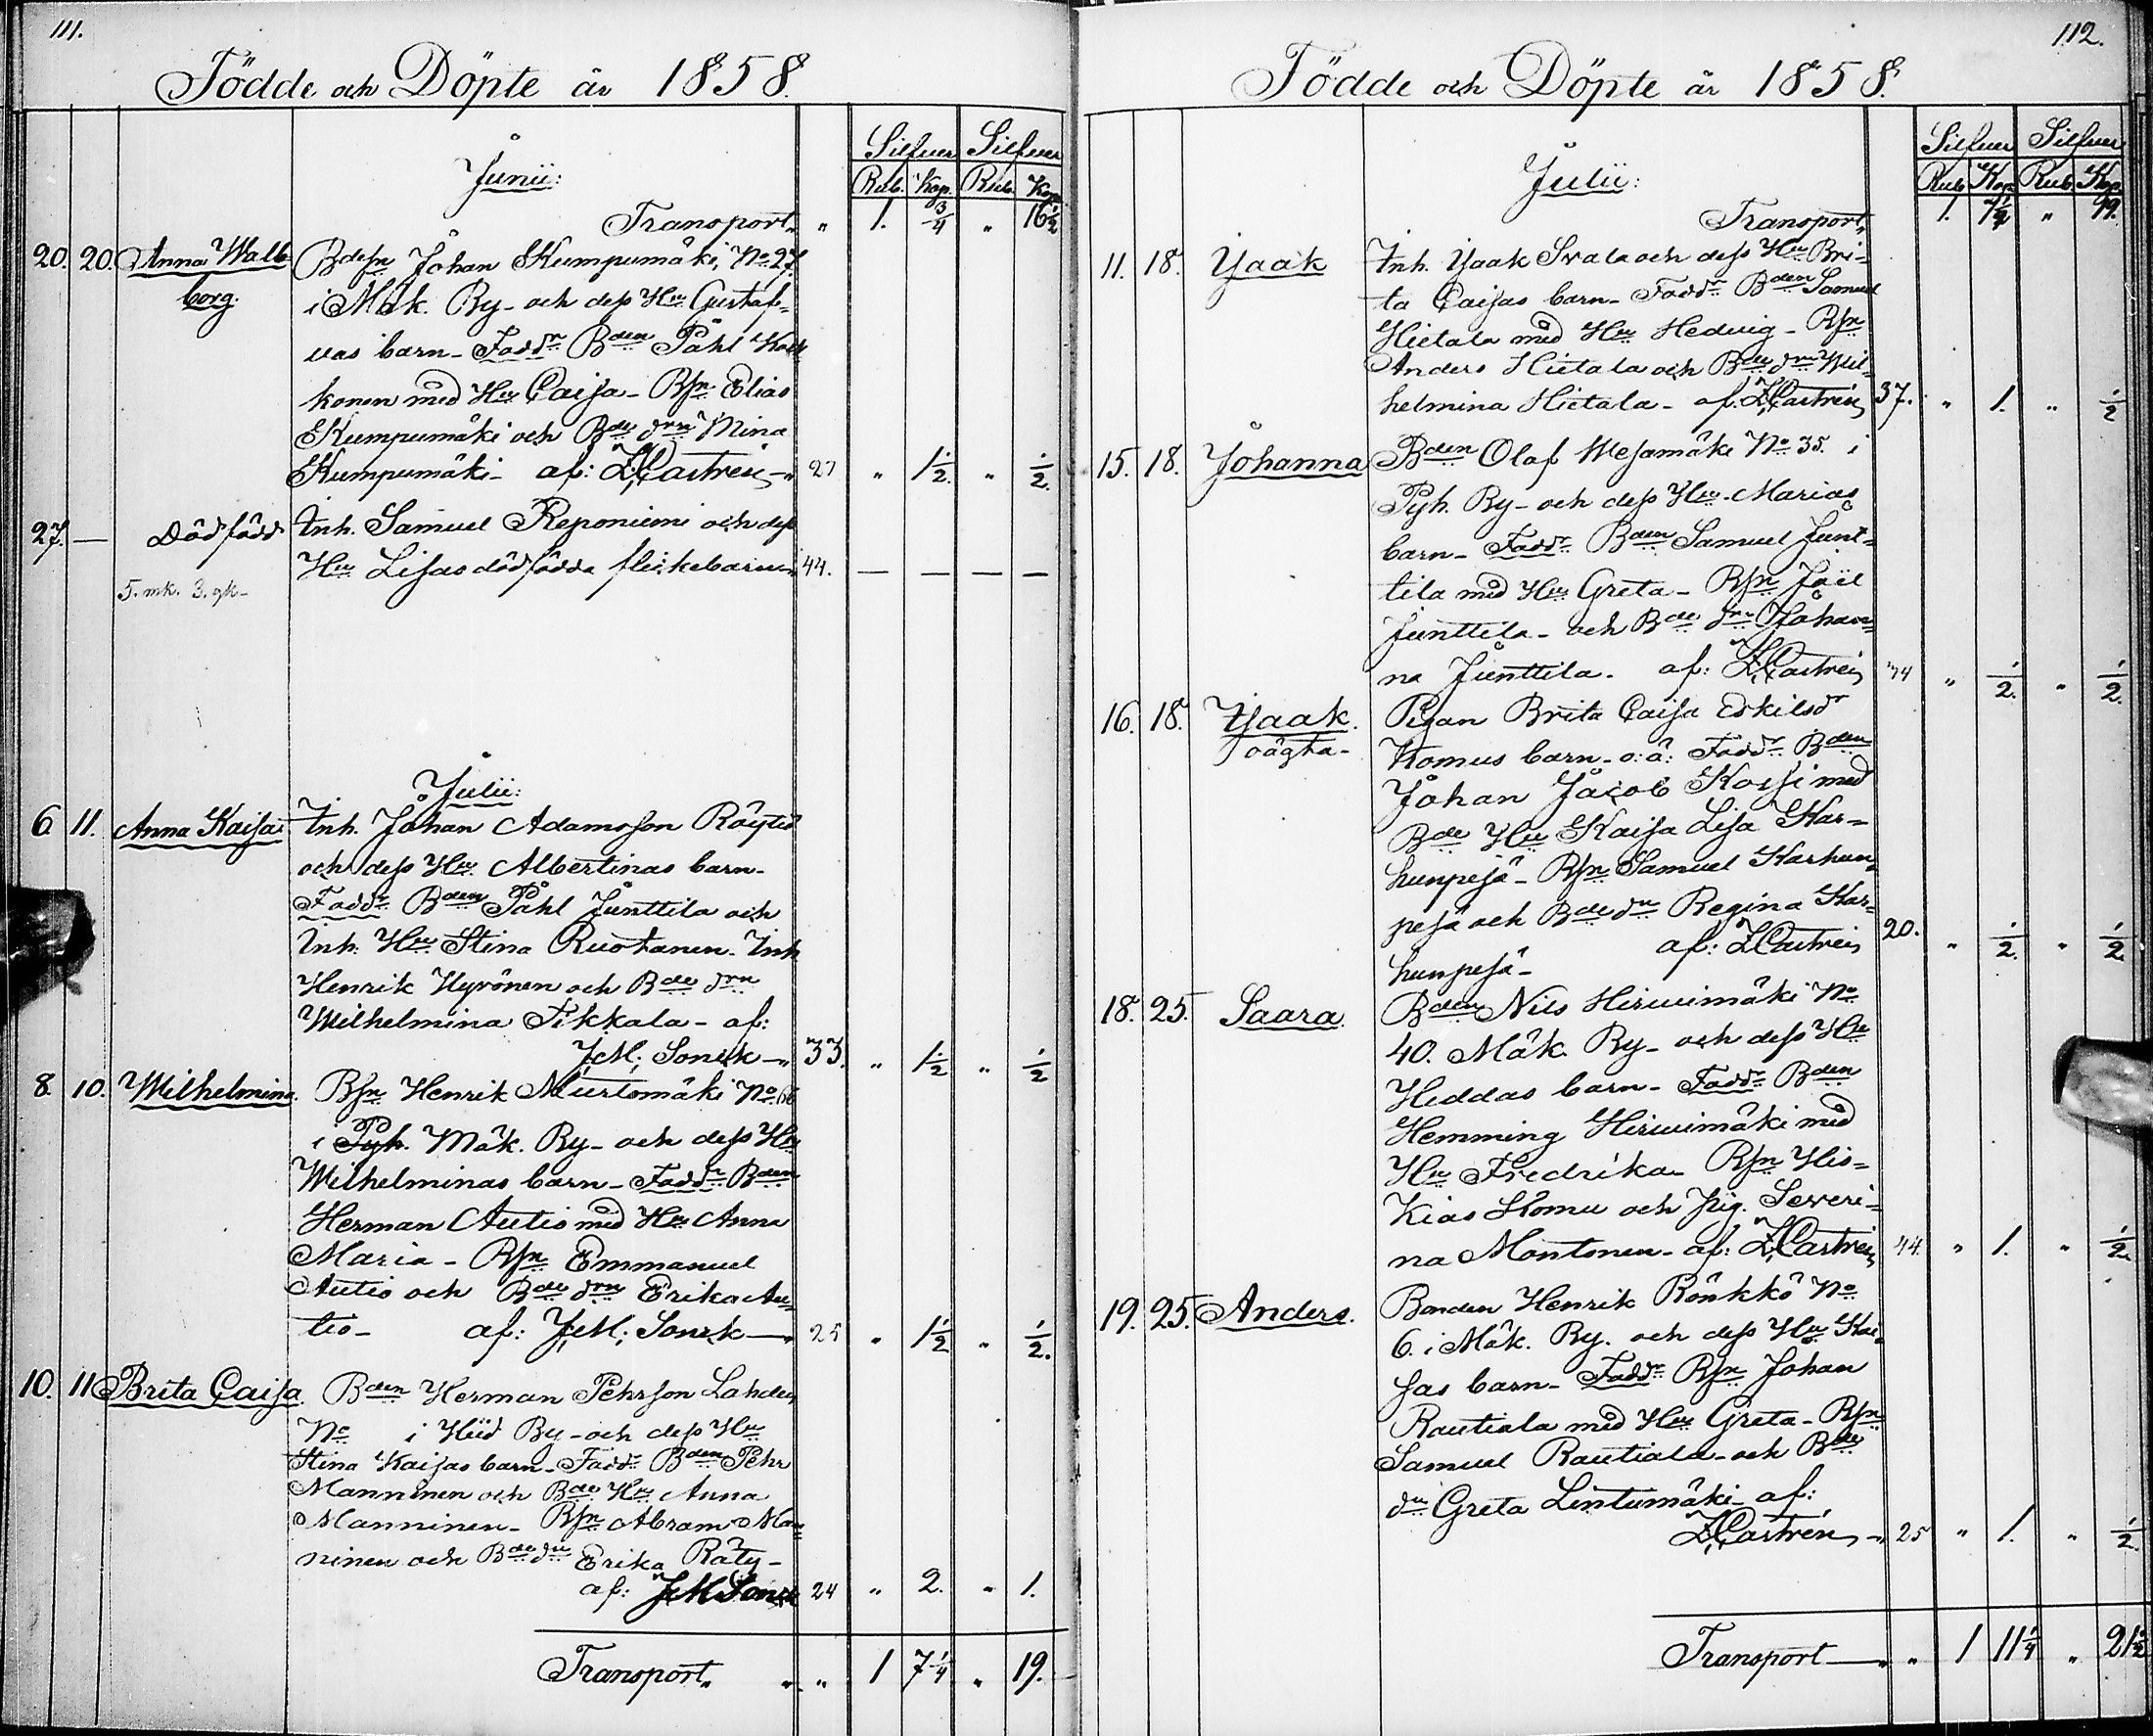 111.
Födde och Döpte år 1858.
Silfver Silfver
Junii:
Rub. Kop. Rub. Kop.
Transport „ „ 1. 3/4 „ 16 1/2
20. 20. Anna Walb- Bdesn Johan Kumpumäki, No 27
borg. i Mäk. By - och dess Hu Gustaf-
vas barn - Faddr Bden Påhl Kock
konen med Hu Caisa - Bsn Elias
Kumpumäki och Bde drn Mina
Kumpumäki - af: Z,Castrén „ 27 „ 1 1/2. „ 1/2.
27. — Dödfödd Inh. Samuel Reponiemi och dess
Hu Lisas dödfödda flickebarn „ 44. — — — —
5. mk. 3. qk -
Julii:
6. 11. Anna Kaisa Inh. Johan Adamsson Räytiö
och dess Hu Albertinas barn -
Faddr Bden Påhl Junttila och
Inh. Hu Stina Ruotanen - Inh
Henrik Hyvönen och Bde drn
Wilhelmina Tikkala - af:
J,M, Sonck „ 33. „ 1 1/2 „ 1/2
8. 10. Wilhelmina. Bsn Henrik Murtomäki No 66
i Pyh. Mäk. By - och dess Hu
Wilhelminas barn - Faddr Bden
Herman Autio med Hu Anna
Maria - Bsn Emmanuel
Autio och Bde drn Erika Au-
tio - af: J,M, Sonck „ 25 „ 1 1/2 „ 1/2.
10. 11 Brita Caisa. Bden Herman Pehrson Lahden
No i Hiid By - och dess Hu
Stina Kaisas barn - Faddr Bden Pehr
Manninen och Bde Hu Anna
Manninen - Bsn Abram Man-
ninen och Bde dn Erika Räty -
af: J M Sonck 24 „ 2. „ 1.
Transport „ „ „ 1 7 1/4 „ 19.
112.
Födde och Döpte år 1858.
Silfver Silfver
Julii:
Rub Kop Rub Kop.
Transport „ 1. 7 1/4 „ 19.
11. 18. Isaak Inh. Isaak Svala och dess Hu Bri-
ta Caisas barn - Faddr Bden Samuel
Hietala med Hu Hedvig - Bsn
Anders Hietala och Bde drn Wil-
helmina Hietala - af: Z,Castrén 37. „ 1. „ 1/2
15. 18. Johanna Bden Olaf Mesamäki No 35. i
Pyh. By - och dess Hu Marias
barn - Faddr Bden Samuel Junt-
tila med Hu Greta - Bsn Joel
Junttila - och Bde drn Johan-
na Junttila. af: Z,Castrén 34 „ 1/2. „ 1/2.
16. 18. Isaak. Pigan Brita Caisa Eskilsdr
oägta - Komus barn - o: ä: Faddr Bden
Johan Jacob Kossi med
Bde Hu Kaisa Lisa Kar-
hunpesä - Bsn Samuel Karhun-
pesä och Bde dn Regina Kar-
hunpesä - af: Z,Castrén 20. „ 1/2. „ 1/2.
18. 25. Saara. Bden Nils Hirvimäki No
40. Mäk. By - och dess Hu
Heddas barn - Faddr Bden
Hemming Hirvimäki med
Hu Fredrika - Bsn His-
kias Komu och pig. Severi-
na Montonen - af: Z,Castrén 44. „ 1. „ 1/2.
19. 25. Anders. Bonden Henrik Rönkkö No
6. i Mäk. By. och dess Hu Kai-
sas barn - Faddr Bsn Johan
Rautiala med Hu Greta - Bsn
Samuel Rautiala - och Bde
dn Greta Lintumäki - af:
Z,Castrén „ 25 „ 1. „ 1/2.
Transport „ „ 1 11 1/4 „ 21 1/2